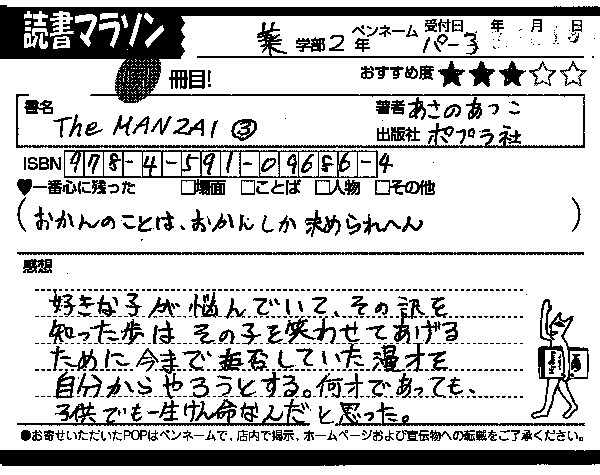 読書マラソン
薬 学部 2 年 ペンネーム パー子 受付日 年 月 日
冊目!
おすすめ度 ★★★☆☆
書名 The MANZAI ③
著者 あさのあつこ
出版社 ポプラ社
ISBN 978-4-591-09686-4
♥一番心に残った □場面 □ことば □人物 □その他
(おかんのことは、おかんしか決められへん)
感想
好きな子が悩んでいて、その訳を
知った歩はその子を笑わせてあげる
ために今まで拒否していた漫才を
自分からやろうとする。何才であっても、
子供でも一生けん命なんだと思った。
●お寄せいただいたPOPはペンネームで、店内で掲示、ホームページおよび宣伝物への転載をご了承ください。